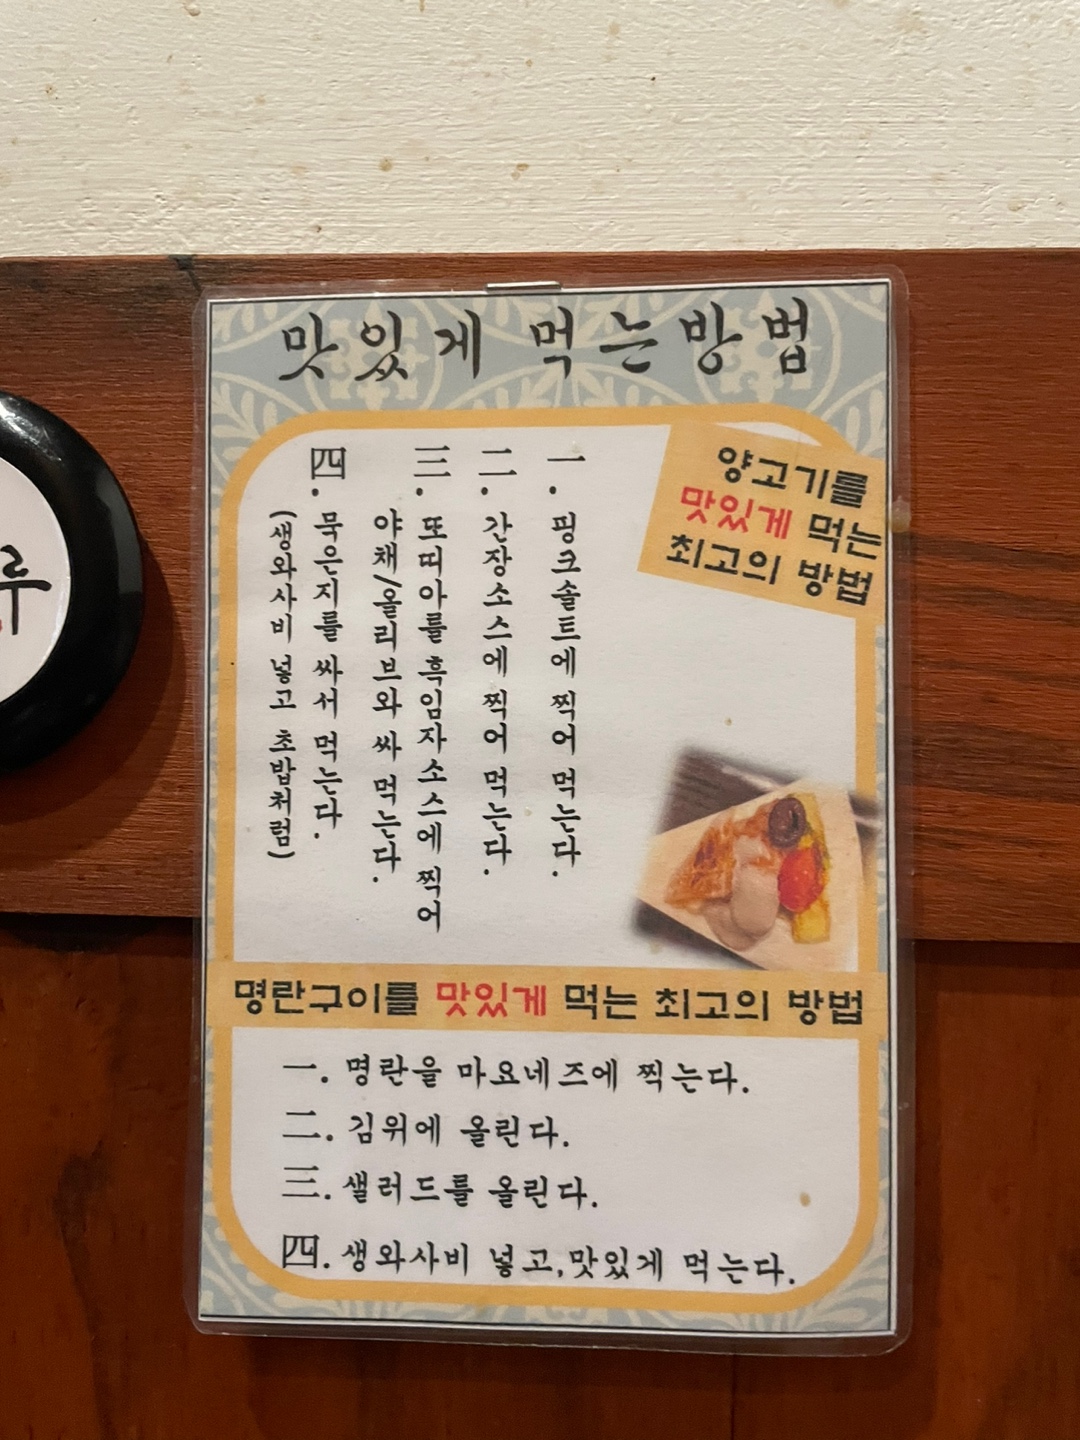 맛있게 먹는방법
양고기를
맛있게 먹는
최고의 방법
一. 핑크솔트에 찍어 먹는다.
二. 간장소스에 찍어 먹는다.
三. 또띠아를 흑임자소스에 찍어
야채/올리브와 싸 먹는다.
四. 묵은지를 싸서 먹는다.
(생와사비 넣고 초밥처럼)
명란구이를 맛있게 먹는 최고의 방법
一. 명란을 마요네즈에 찍는다.
二. 김위에 올린다.
三. 샐러드를 올린다.
四. 생와사비 넣고,맛있게 먹는다.
루